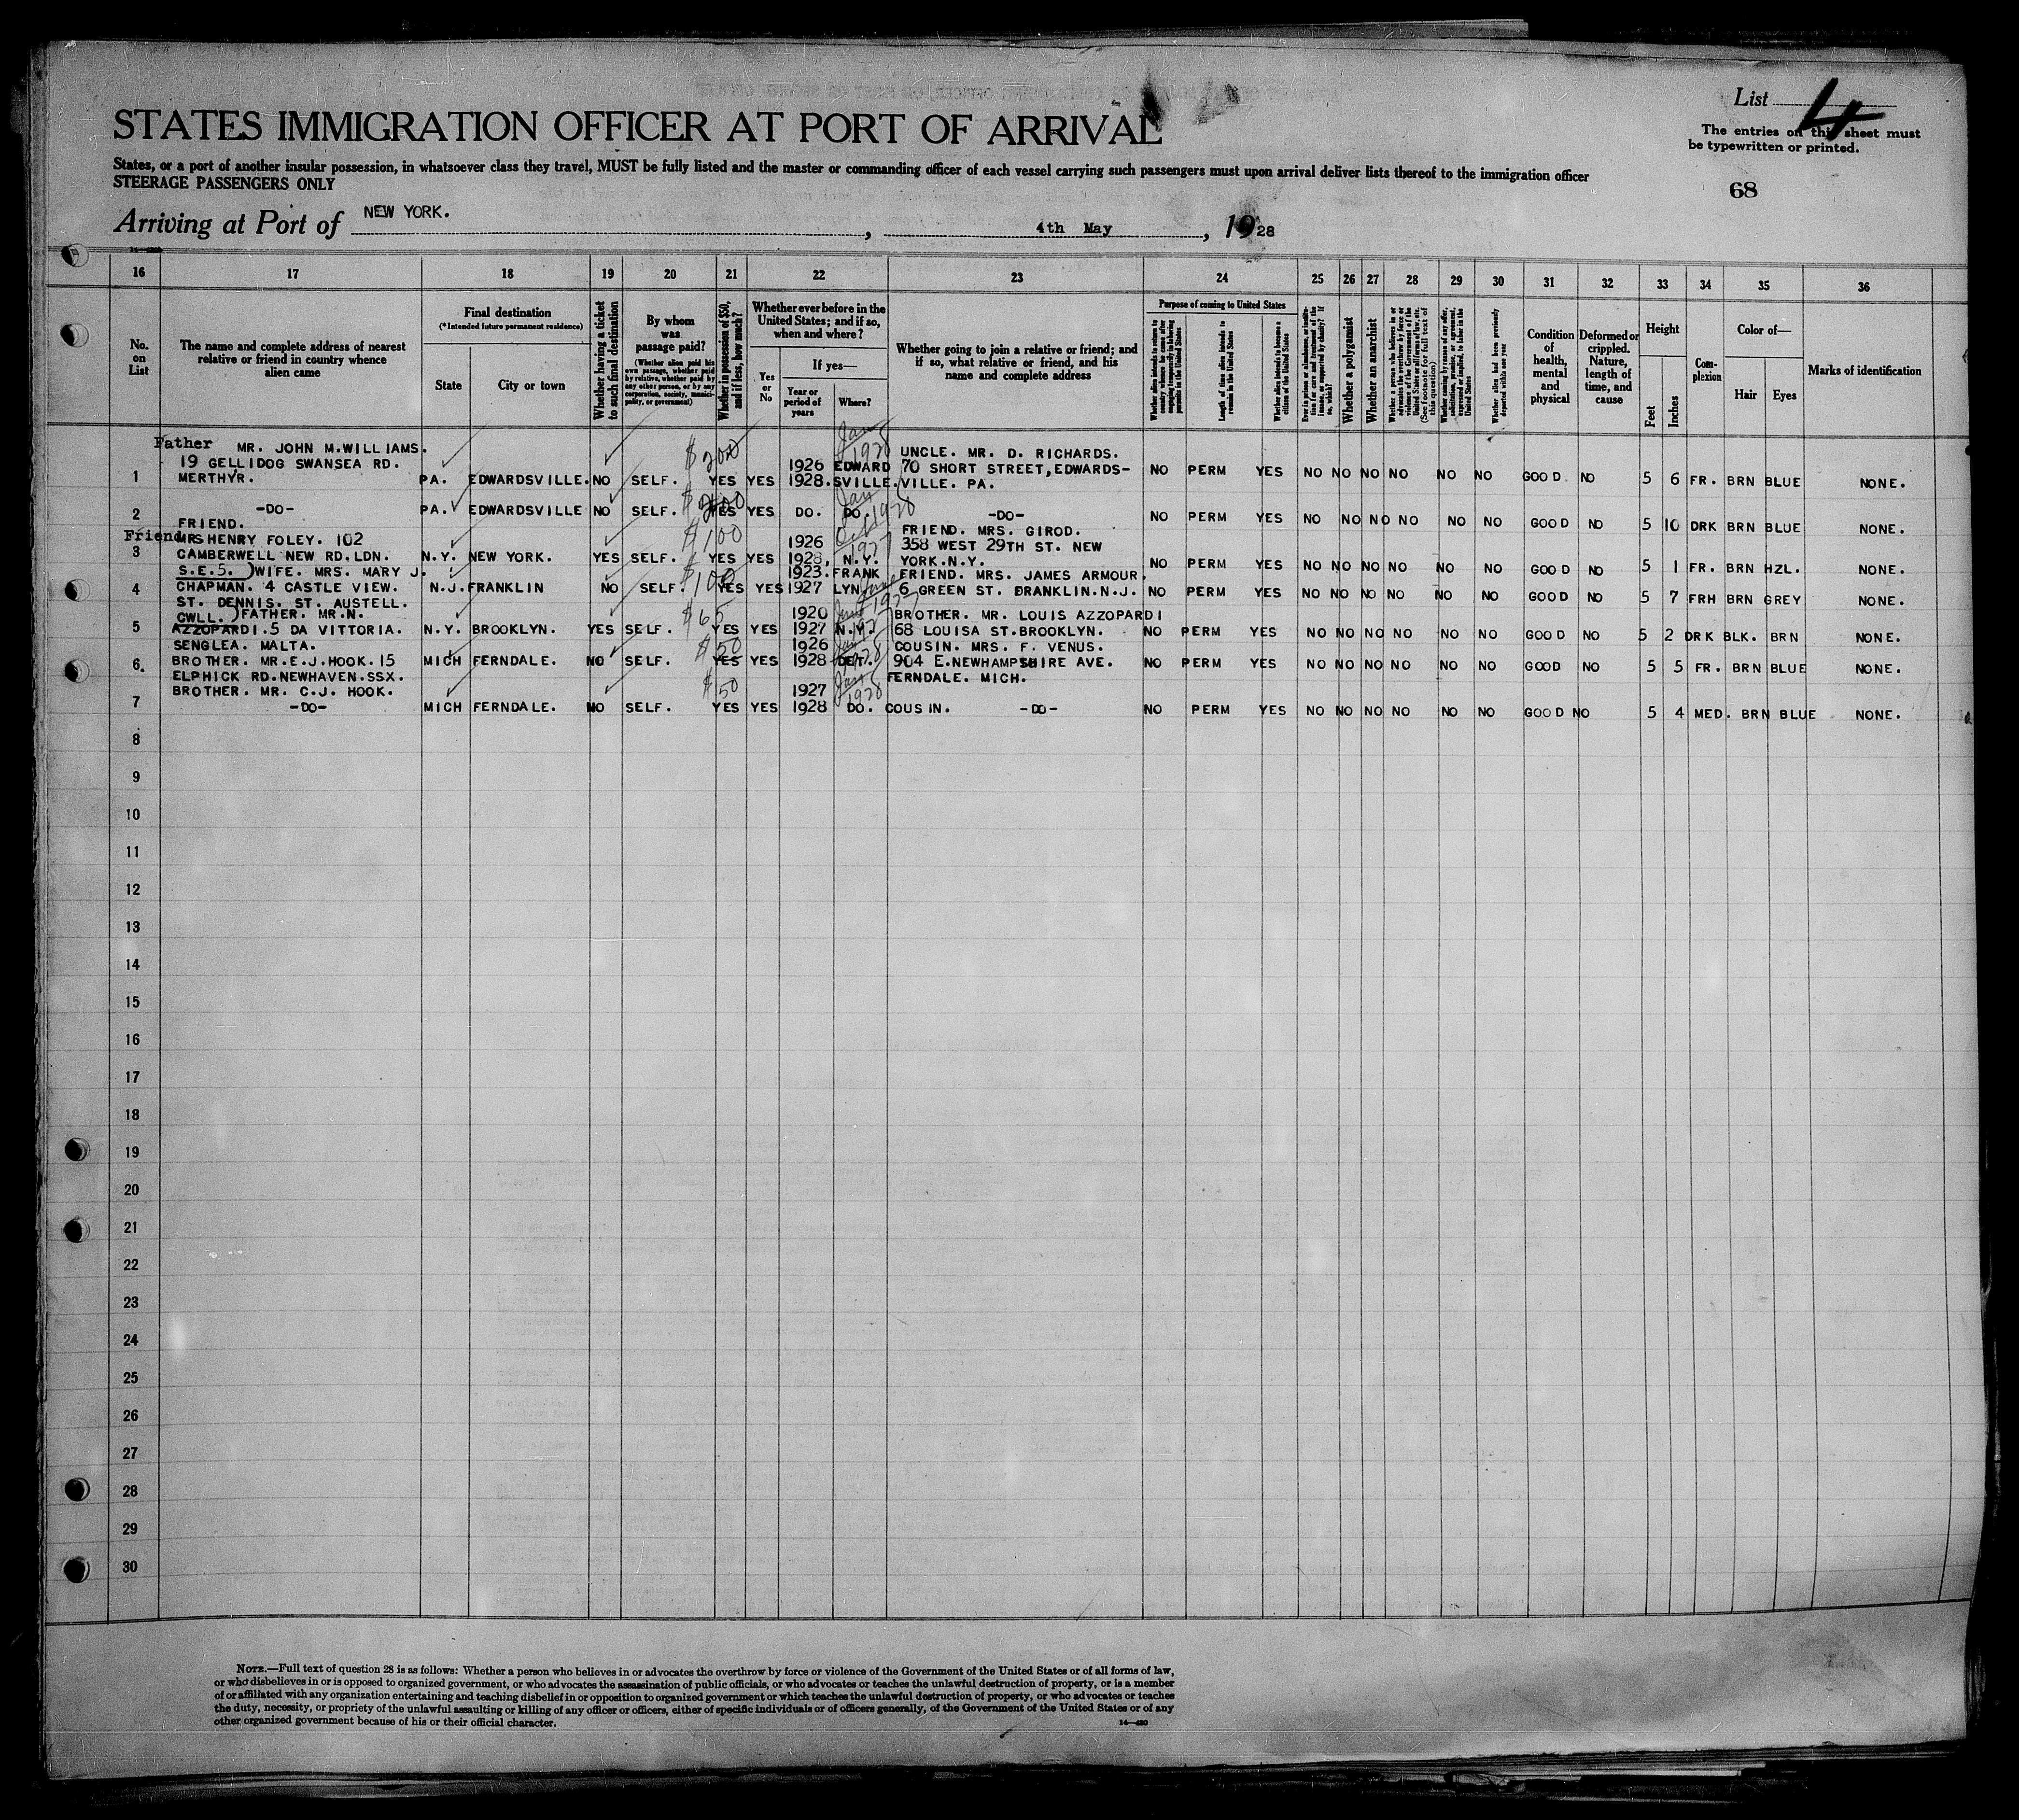 List 4
The entries on this sheet must
be typewritten or printed.
68
STATES IMMIGRATION OFFICER AT PORT OF ARRIVAL
States, or a port of another insular possession, in whatsoever class they travel, MUST be fully listed and the master or commanding officer of each vessel carrying such passengers must upon arrival deliver lists thereof to the immigration officer
STEERAGE PASSENGERS ONLY
Arriving at Port of NEW YORK. , 4th May , 1928
16 17 18 19 20 21 22 23 24 25 26 27 28 29 30 31 32 33 34 35 36
No. on List
The name and complete address of nearest relative or friend in country whence alien came
Final destination
(*Intended future permanent residence)
State
City or town
Whether having a ticket to such final destination
By whom was passage paid?
(Whether alien paid his own passage, whether paid by relative, whether paid by any other person, or by any corporation, society, municipality, or government)
Whether in possession of $50, and if less, how much?
Whether ever before in the United States; and if so, when and where?
Yes or No
If yes—
Year or period of years
Where?
Whether going to join a relative or friend; and if so, what relative or friend, and his name and complete address
Purpose of coming to United States
Whether alien intends to return to country whence he came after engaging temporarily in laboring pursuits in the United States
Length of time alien intends to remain in the United States
Whether alien intends to become a citizen of the United States
Ever in prison or almshouse, or institution for care and treatment of the insane, or supported by charity? If so, which?
Whether a polygamist
Whether an anarchist
Whether a person who believes in or advocates the overthrow by force or violence of the Government of the United States or all forms of law, etc. (See footnote for full text of this question)
Whether coming by reason of any offer, solicitation, promise, or agreement, expressed or implied, to labor in the United States
Whether alien had been previously deported within one year
Condition of health, mental and physical
Deformed or crippled. Nature, length of time, and cause
Height
Feet
Inches
Complexion
Color of—
Hair
Eyes
Marks of identification
Father MR. JOHN M.WILLIAMS. $200 Jan 1928 UNCLE. MR. D. RICHARDS.
19 GELLIDOG SWANSEA RD. 1926 EDWARD 70 SHORT STREET,EDWARDS-
1 MERTHYR. PA. EDWARDSVILLE. NO SELF. YES YES 1928. SVILLE. VILLE. PA. NO PERM YES NO NO NO NO NO NO GOOD NO 5 6 FR. BRN BLUE NONE.
2 -DO- PA. EDWARDSVILLE NO SELF. YES YES DO. DO. Jan 1928 -DO- NO PERM YES NO NO NO NO NO NO GOOD NO 5 10 DRK BRN BLUE NONE.
FRIEND. $100 Oct 1927 FRIEND. MRS. GIROD.
Friend MRS HENRY FOLEY. 102 1926 358 WEST 29TH ST. NEW
3 CAMBERWELL NEW RD.LDN. N.Y. NEW YORK. YES SELF. YES YES 1928, N.Y. YORK.N.Y. NO PERM YES NO NO NO NO NO NO GOOD NO 5 1 FR. BRN HZL. NONE.
S.E.5. ) WIFE. MRS. MARY J. $100 1923. FRANK FRIEND. MRS. JAMES ARMOUR.
4 CHAPMAN. 4 CASTLE VIEW. N.J. FRANKLIN NO SELF. YES YES 1927 LYN June 1927 6 GREEN ST. DRANKLIN.N.J. NO PERM YES NO NO NO NO NO NO GOOD NO 5 7 FRH BRN GREY NONE.
ST. DENNIS. ST. AUSTELL.
CWLL. ) FATHER. MR.N. $65 1920 BROTHER. MR. LOUIS AZZOPARDI
5 AZZOPARDI.5 DA VITTORIA. N.Y. BROOKLYN. YES SELF. YES YES 1927 N.Y. 68 LOUISA ST.BROOKLYN. NO PERM YES NO NO NO NO NO NO GOOD NO 5 2 DRK BLK. BRN NONE.
SENGLEA. MALTA. $50 1926 COUSIN. MRS. F. VENUS.
6. BROTHER. MR.E.J.HOOK. 15 MICH FERNDALE. NO SELF. YES YES 1928 DET. 904 E.NEWHAMPSHIRE AVE. NO PERM YES NO NO NO NO NO NO GOOD NO 5 5 FR. BRN BLUE NONE.
ELPHICK RD.NEWHAVEN.SSX. FERNDALE. MICH.
BROTHER. MR. C.J. HOOK. $50 1927 Jan 1928
7 -DO- MICH FERNDALE. NO SELF. YES YES 1928 DO. COUSIN. -DO- NO PERM YES NO NO NO NO NO NO GOOD NO 5 4 MED. BRN BLUE NONE.
8
9
10
11
12
13
14
15
16
17
18
19
20
21
22
23
24
25
26
27
28
29
30
NOTE.—Full text of question 28 is as follows: Whether a person who believes in or advocates the overthrow by force or violence of the Government of the United States or of all forms of law,
or who disbelieves in or is opposed to organized government, or who advocates the assassination of public officials, or who advocates or teaches the unlawful destruction of property, or is a member
of or affiliated with any organization entertaining and teaching disbelief in or opposition to organized government or which teaches the unlawful destruction of property, or who advocates or teaches
the duty, necessity, or propriety of the unlawful assaulting or killing of any officer or officers, either of specific individuals or of officers generally, of the Government of the United States or of any
other organized government because of his or their official character.
14—430